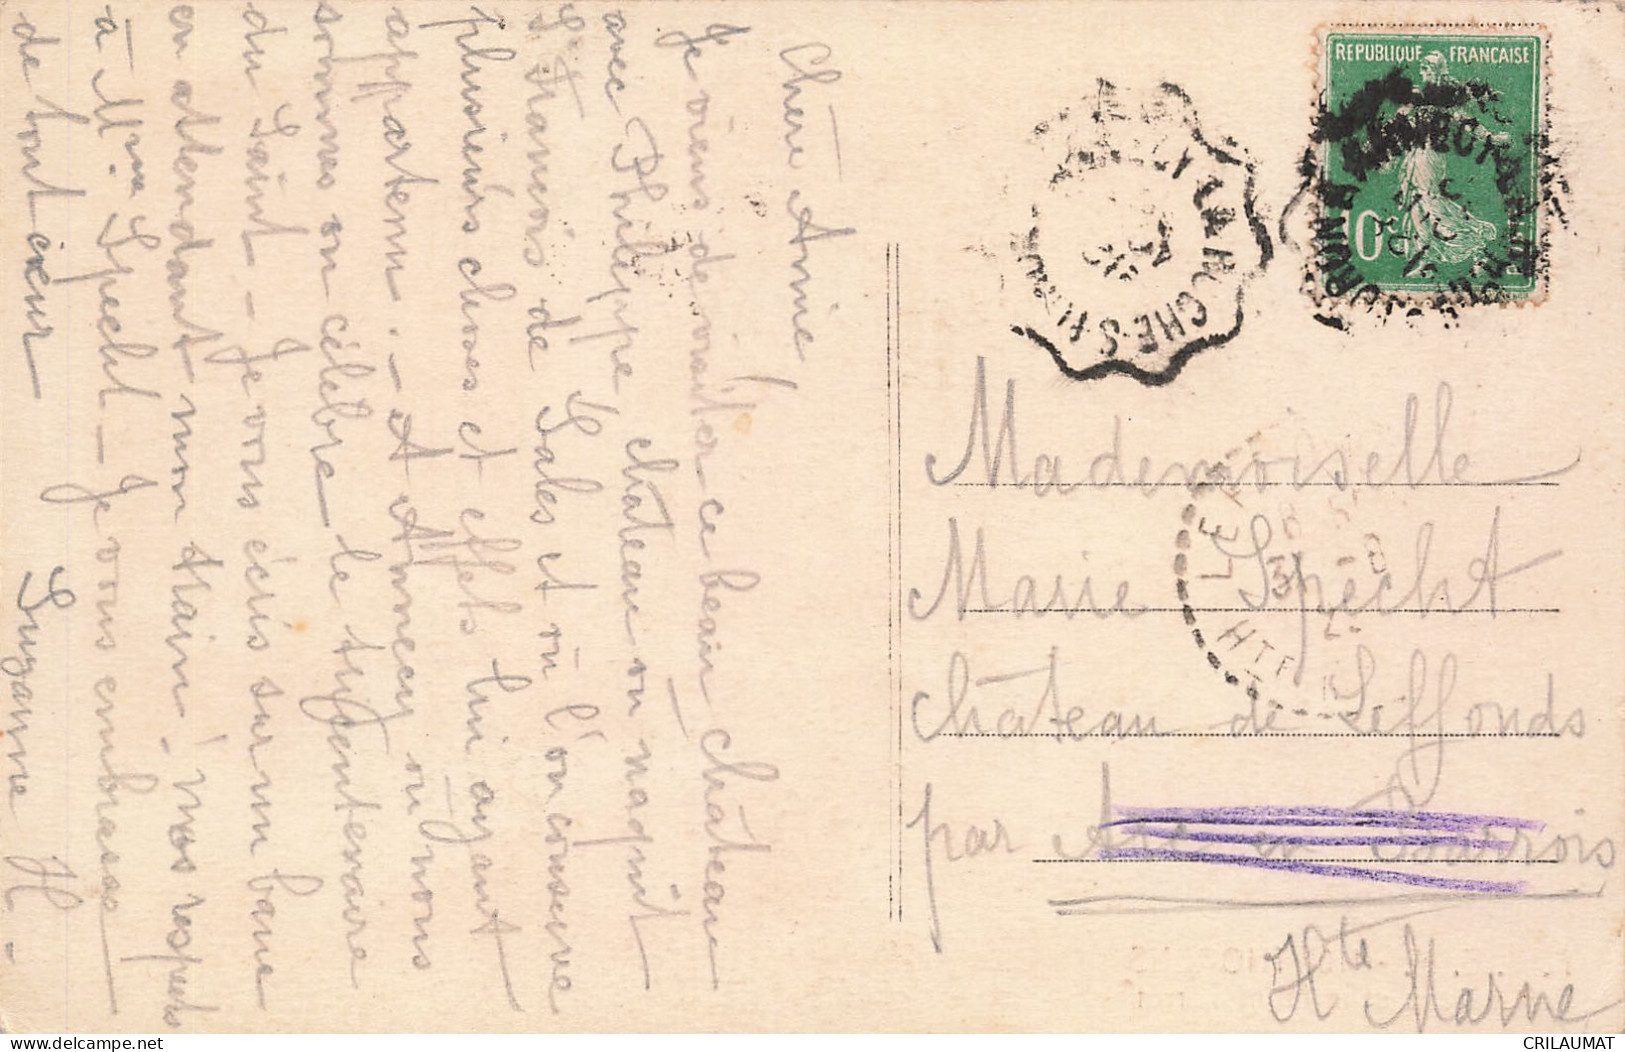 Chère Amie,
Je viens de visiter ce beau château
avec Philippe, château où naquit
St François de Sales et où l'on conserve
plusieurs choses et effets lui ayant
appartenu. - A Annecy où nous
sommes on célèbre le tricentenaire
du Saint - Je vous écris sur un banc
en attendant mon train! mes respects
à Mme Specht - Je vous embrasse
de tout cœur
Suzanne H -
REPUBLIQUE FRANÇAISE
Mademoiselle
Marie Specht
château de Leffonds
par Arc en Barrois
Hte Marne
HTE
CRILAUMAT